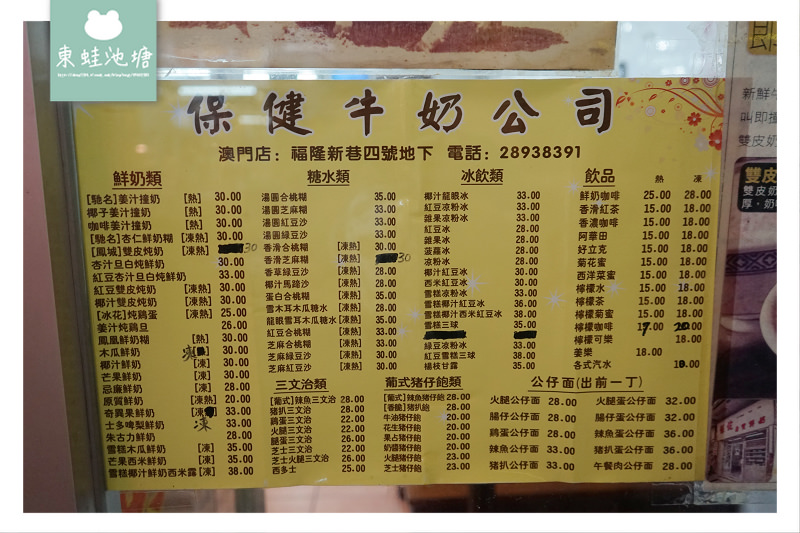 東蛙池塘
保健牛奶公司
澳門店：福隆新巷四號地下 電話：28938391
鮮奶類
[馳名]姜汁撞奶 [熱] 30.00
椰子姜汁撞奶 30.00
咖啡姜汁撞奶 30.00
[馳名]杏仁鮮奶糊 [凍熱] 30.00
[鳳城]雙皮炖奶 [凍熱] 30
杏汁旦白炖鮮奶 30.00
紅豆杏汁旦白炖鮮奶 33.00
紅豆雙皮炖奶 [凍熱] 30.00
椰汁雙皮炖奶 [凍熱] 30.00
[冰花]炖鷄蛋 [凍熱] 25.00
姜汁炖鷄旦 26.00
鳳凰鮮奶糊 [熱] 30.00
木瓜鮮奶 30.00
椰汁鮮奶 [凍] 30.00
芒果鮮奶 [凍] 30.00
忌廉鮮奶 [凍] 28.00
原質鮮奶 [凍熱] 20.00
奇異果鮮奶 [凍] 33.00
士多啤梨鮮奶 凍 33.00
朱古力鮮奶 28.00
雪糕木瓜鮮奶 [凍] 35.00
芒果西米鮮奶 [凍] 35.00
雪糕椰汁鮮奶西米露 [凍] 38.00
糖水類
湯圓合桃糊 35.00
湯圓芝麻糊 33.00
湯圓紅豆沙 33.00
湯圓綠豆沙 33.00
香滑合桃糊 [凍熱] 30.00
香滑芝麻糊 [凍熱] 30
香草綠豆沙 [凍熱] 28.00
椰汁馬蹄沙 [凍熱] 28.00
蛋白合桃糊 [凍熱] 35.00
雪木耳木瓜糖水 [凍熱] 28.00
龍眼雪耳木瓜糖水 [凍熱] 35.00
紅豆合桃糊 [凍熱] 33.00
芝麻合桃糊 [凍熱] 33.00
芝麻綠豆沙 [凍熱] 30.00
芝麻紅豆沙 [凍熱] 30.00
冰飲類
椰汁龍眼冰 33.00
紅豆凉粉冰 33.00
雜果凉粉冰 33.00
紅豆冰 28.00
雜果冰 28.00
菠蘿冰 28.00
凉粉冰 28.00
椰汁紅豆冰 30.00
西米紅豆冰 30.00
雪糕凉粉冰 33.00
雪糕椰汁紅豆冰 36.00
雪糕椰汁西米紅豆冰 38.00
雪糕三球 35.00
綠豆凉粉冰 33.00
紅豆雪糕三球 38.00
楊枝甘露 35.00
飲品 熱 凍
鮮奶咖啡 25.00 28.00
香滑紅茶 15.00 18.00
香濃咖啡 15.00 18.00
阿華田 15.00 18.00
好立克 15.00 18.00
菊花蜜 15.00 18.00
西洋菜蜜 15.00 18.00
檸檬水 15.00 18.00
檸檬茶 15.00 18.00
檸檬菊蜜 15.00 18.00
檸檬咖啡
檸檬可樂 18.00
姜樂 18.00
各式汽水
三文治類
[葡式]辣魚三文治 28.00
豬扒三文治 28.00
鷄蛋三文治 22.00
火腿三文治 22.00
腿蛋三文治 26.00
芝士三文治 22.00
芝士火腿三文治 26.00
西多士 25.00
葡式豬仔飽類
[葡式]辣魚豬仔飽 28.00
[香脆]豬扒飽 28.00
牛油豬仔飽 20.00
花生豬仔飽 20.00
果占豬仔飽 20.00
奶醬豬仔飽 20.00
火腿豬仔飽 23.00
芝士豬仔飽 23.00
公仔面(出前一丁)
火腿公仔面 28.00 火腿蛋公仔面 32.00
腸仔公仔面 28.00 腸仔蛋公仔面 32.00
鷄蛋公仔面 28.00 辣魚蛋公仔面 36.00
辣魚公仔面 33.00 豬扒蛋公仔面 36.00
豬扒公仔面 33.00 午餐肉公仔面 28.00
新鮮牛
叫即撞
雙皮奶
雙皮
雙皮奶
厚，奶